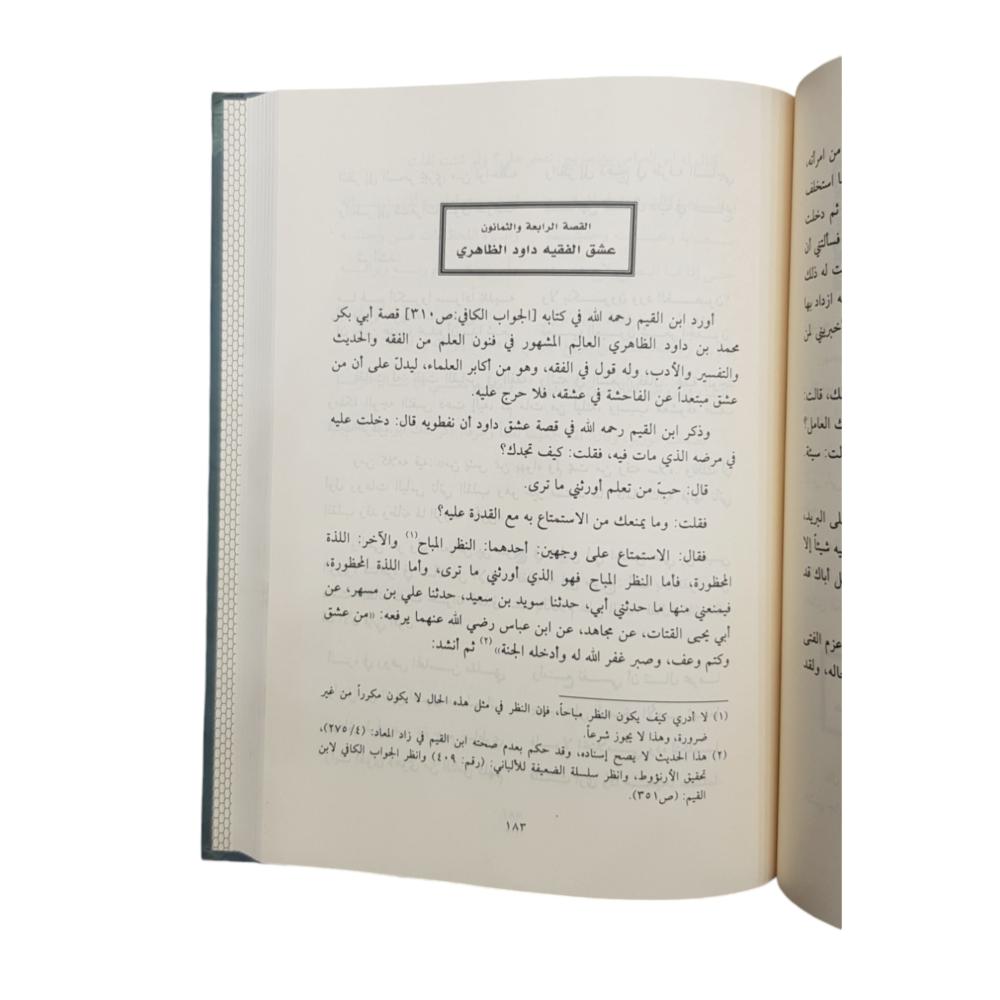 القصة الرابعة والثمانون
عشق الفقيه داود الظاهري
أورد ابن القيم رحمه الله في كتابه [الجواب الكافي:ص٣١٠] قصة أبي بكر
محمد بن داود الظاهري العالِم المشهور في فنون العلم من الفقه والحديث
والتفسير والأدب، وله قول في الفقه، وهو من أكابر العلماء، ليدلّ على أن من
عشق مبتعداً عن الفاحشة في عشقه، فلا حرج عليه.
وذكر ابن القيم رحمه الله في قصة عشق داود أن نفطويه قال: دخلت عليه
في مرضه الذي مات فيه، فقلت: كيف تجدك؟
قال: حبّ من تعلم أورثني ما ترى.
فقلت: وما يمنعك من الاستمتاع به مع القدرة عليه؟
فقال: الاستمتاع على وجهين: أحدهما: النظر المباح(١) والآخر: اللذة
المحظورة، فأما النظر المباح فهو الذي أورثني ما ترى، وأما اللذة المحظورة،
فيمنعني منها ما حدثني أبي، حدثنا سويد بن سعيد، حدثنا علي بن مسهر، عن
أبي يحيى القتات، عن مجاهد، عن ابن عباس رضي الله عنهما يرفعه: «من عشق
وكتم وعف، وصبر غفر الله له وأدخله الجنة»(٢) ثم أنشد:
(١) لا أدري كيف يكون النظر مباحاً، فإن النظر في مثل هذه الحال لا يكون مكرراً من غير
ضرورة، وهذا لا يجوز شرعاً.
(٢) هذا الحديث لا يصح إسناده، وقد حكم بعدم صحته ابن القيم في زاد المعاد: (٢٧٥/٤)،
تحقيق الأرنؤوط، وانظر سلسلة الضعيفة للألباني: (رقم: ٤٠٩) وانظر الجواب الكافي لابن
القيم: (ص٣٥١).
١٨٣
من امرأته،
ا استخلف
ثم دخلت
فسألتني أن
ت له ذلك
ه ازداد بها
خبريني لمن
ك، قالت:
ك العامل؟
لت: سيئة.
لى البريد،
يه شيئاً إلا
ل أباك قد
عزم الفتى
حاله، ولقد